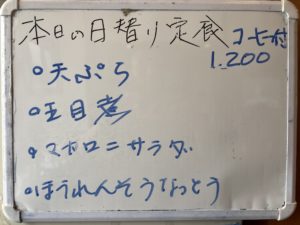 本日の日替り定食 コーヒー付
1.200
○天ぷら
○五目煮
○マカロニサラダ
○ほうれんそうなっとう